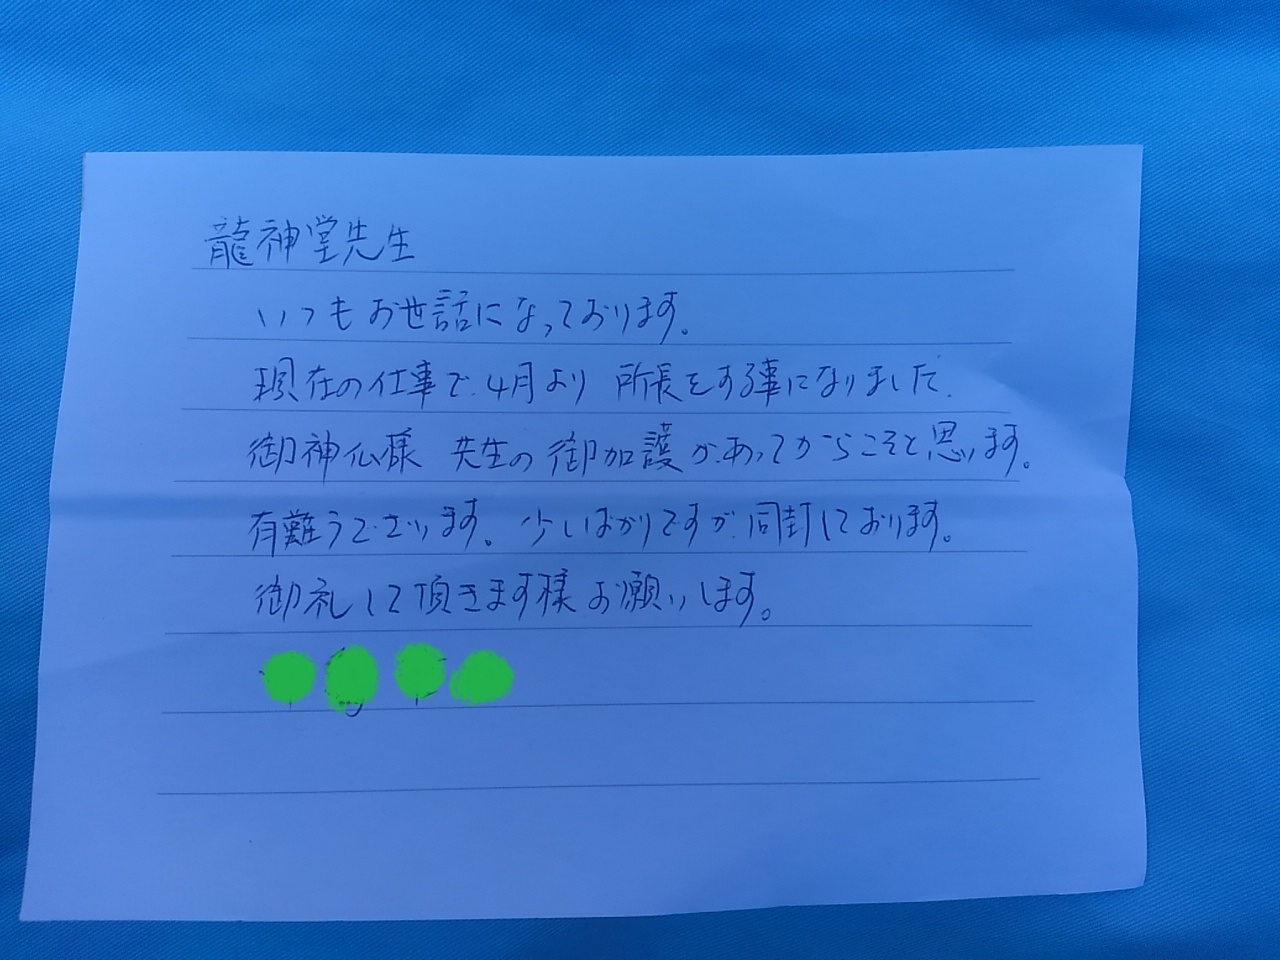 龍神堂先生
いつもお世話になっております。
現在の仕事で、4月より 所長をする事になりました.
御神仏様 先生の御加護があってからこそと思います。
有難うございます。少しばかりですが、同封しております。
御礼して頂きます様お願いします。